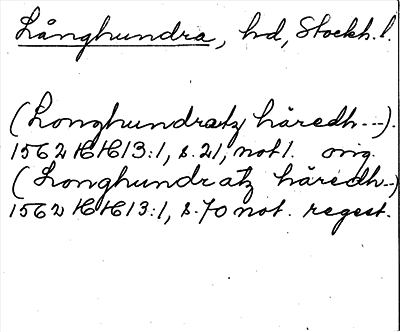 Långhundra, hd, Stockh. l.
(Longhundratz häredh---).
1562 HH13:1, s. 21, not 1. orig.
(Longhundratz häredh--)
1562 HH13:1, s. 70 not. regest.